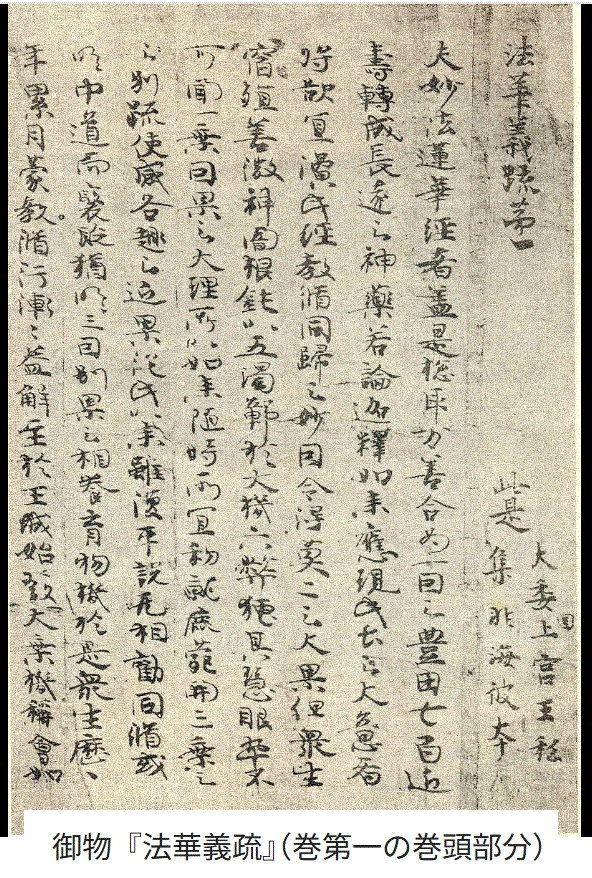 法華義疏第一
此是
大委国上宮王私
集非海彼本
夫妙法蓮華經者蓋是惣取万善合為一因之豊田七百近
壽轉成長遠之神藥若論迦釋如来應現此土之大意者
将欲宜演此經教脩同歸之妙因令得莫二之大果但衆生
宿殖善微神闇根鈍以五濁鄣於大機六弊掩其慧眼卒不
可聞一乗因果之大理所以如来随時所宜初就鹿苑開三乗之
別疏使感各趣之近果従此以来雖復平説无相勸同脩或
明中道而褒貶猶明三因別果之相養育物機於是衆生歷、
年累月蒙教脩行漸〻益解至於王城始發大乗機稱會如
御物『法華義疏』（巻第一の巻頭部分）